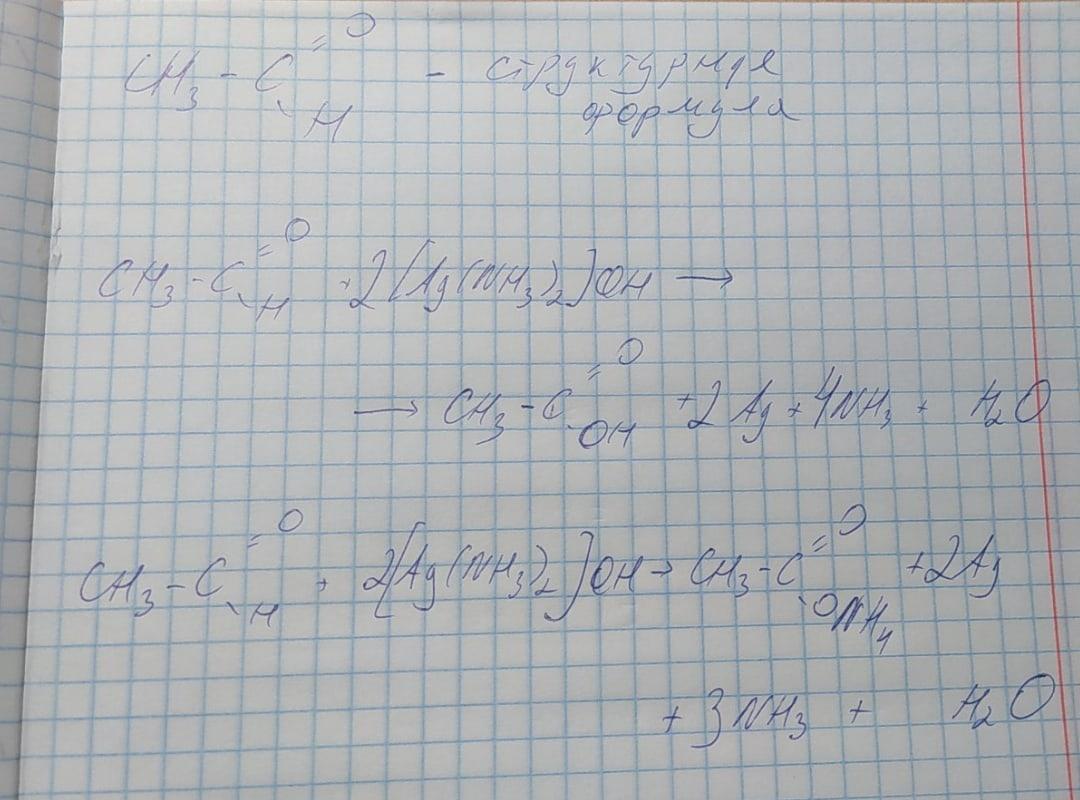 CH₃ - C =O - структурная
H формула
CH₃ - C =O H + 2[Ag(NH₃)₂]OH →
→ CH₃ - C =O OH + 2Ag + 4NH₃ + H₂O
CH₃ - C =O H + 2[Ag(NH₃)₂]OH → CH₃ - C =O ONH₄ + 2Ag
+ 3NH₃ + H₂O